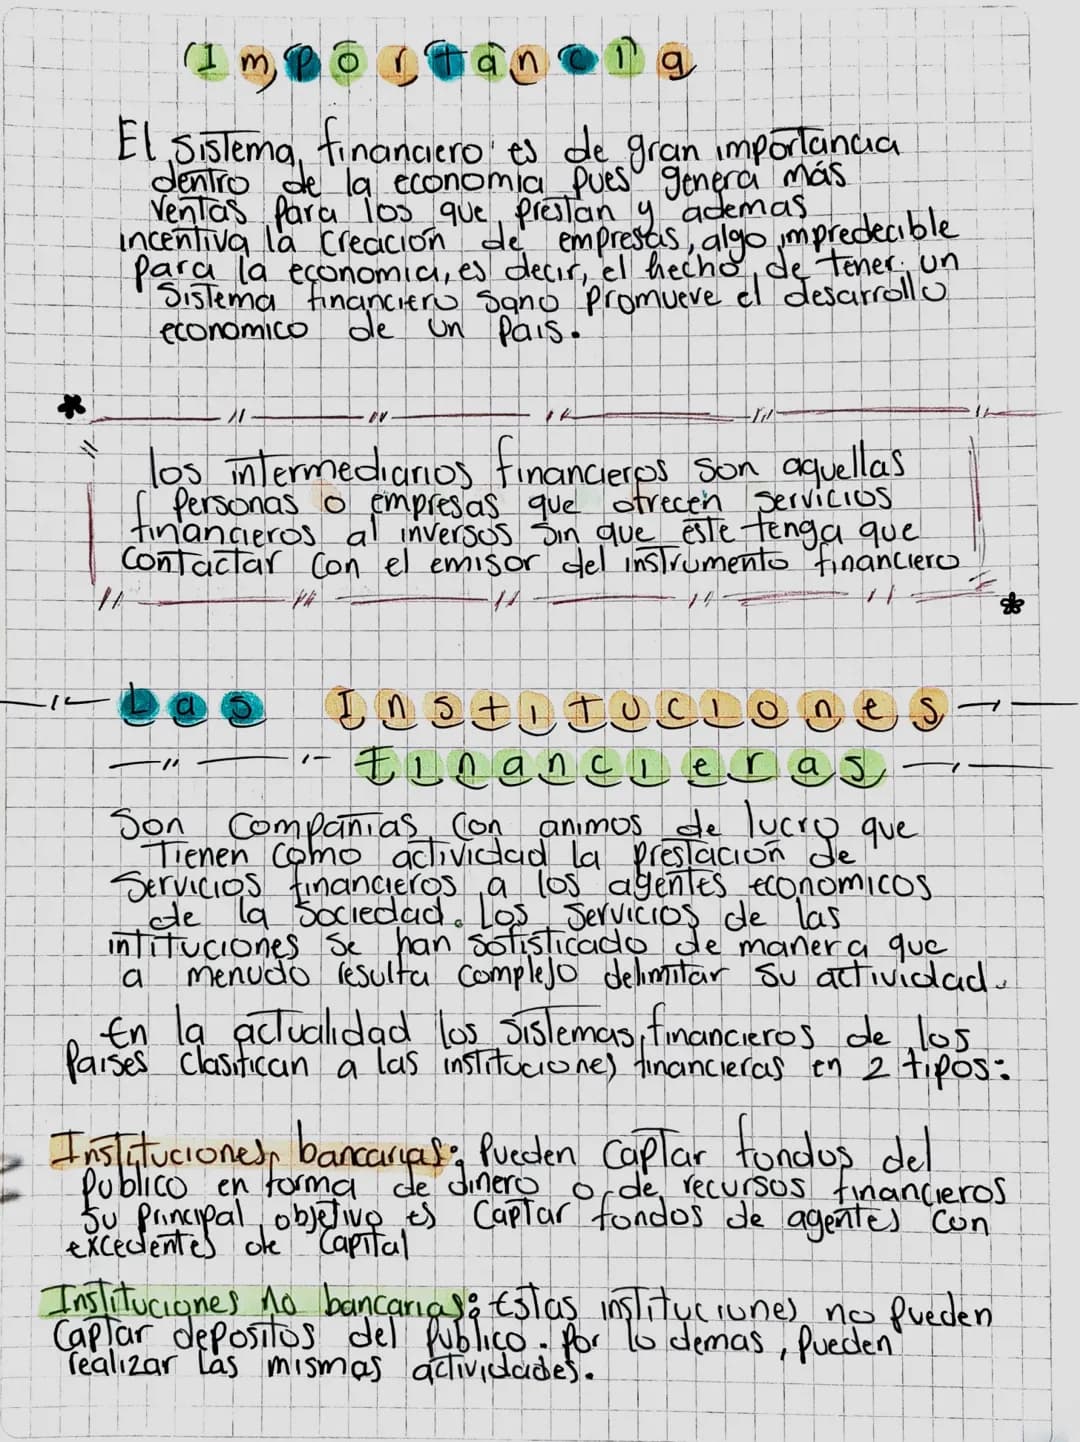 Importancia
El Sistema financiero es de gran importancia
dentro de la economia pues genera más
ventas para los que prestan y ademas
incentiva la creación de empresas, algo impredecible
para la economia, es decir, el hecho de tener un
Sistema financiero sano promueve el desarrollo
economico de un pais.
los intermediarios financieros son aquellas
Personas o empresas que ofrecen servicios
financieros al inversos sin que este tenga que
contactar con el emisor del instrumento financiero
Las Instituciones
Financieras
Son Compañias con animos de lucro que
Tienen como actividad la prestación de
Servicios financieros a los agentes economicos
de la Sociedad. Los servicios de las
intituciones se han sofisticado de manera que
a menudo resulta complejo delimitar su actividad.
En la actualidad los sistemas financieros de los
Paises clasifican a las instituciones financieras en 2 tipos:
Instituciones bancarias: Pueden captar fondos del
Publico en forma de dinero o de recursos financieros
Su principal objetivo es captar fondos de agentes con
excedentes de Capital
Instituciones no bancarias: Estas instituciones no pueden
Captar depositos del Publico. Por lo demas, pueden
realizar las mismas actividades.